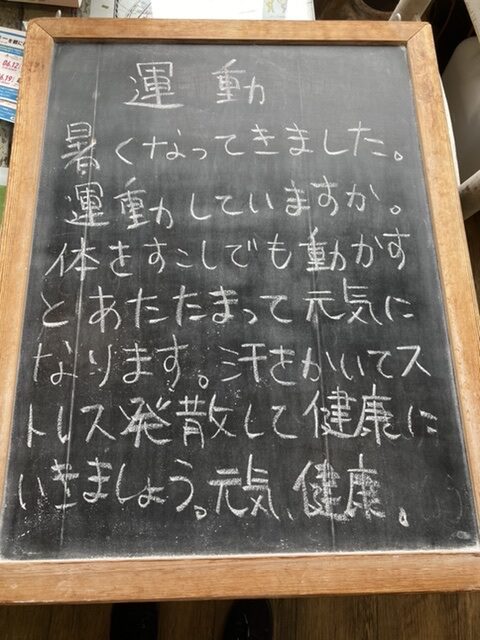 運動
暑くなってきました。
運動していますか。
体をすこしでも動かす
とあたたまって元気に
なります。汗をかいてス
トレス発散して健康に
いきましょう。元気、健康。
06.12
6.19